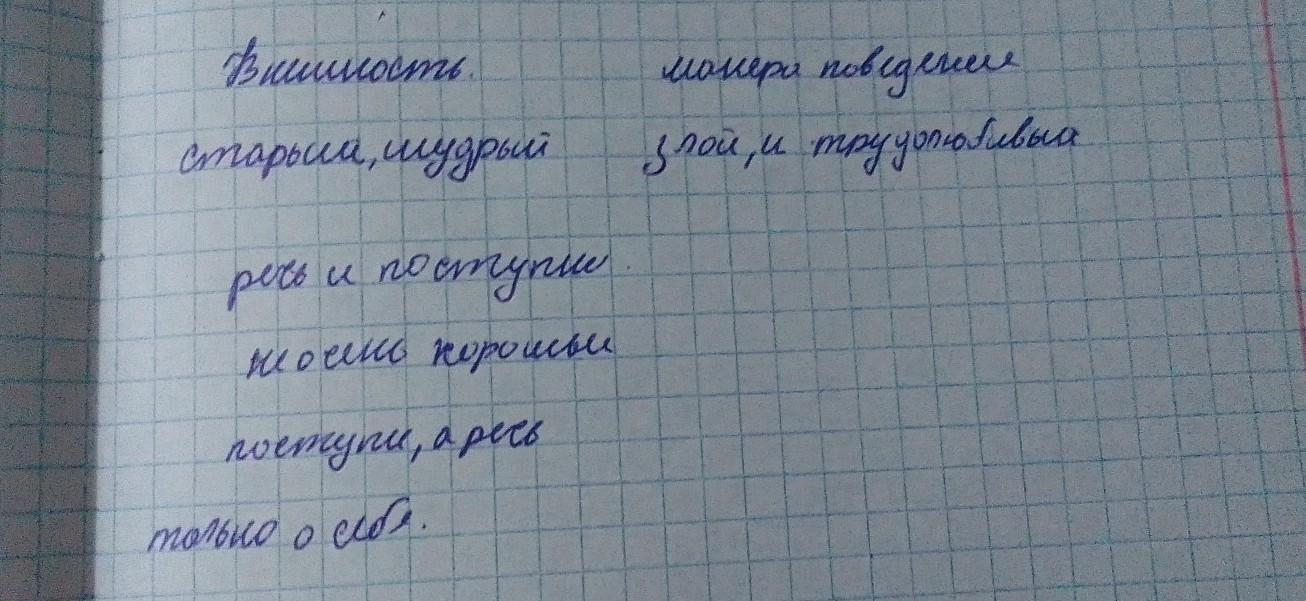 Внишность. манера поведение
старыи, мудрый злой, и трудолюбивыи
ресь и поступке.
хорошыи
поступи, а ресь
только о себя.